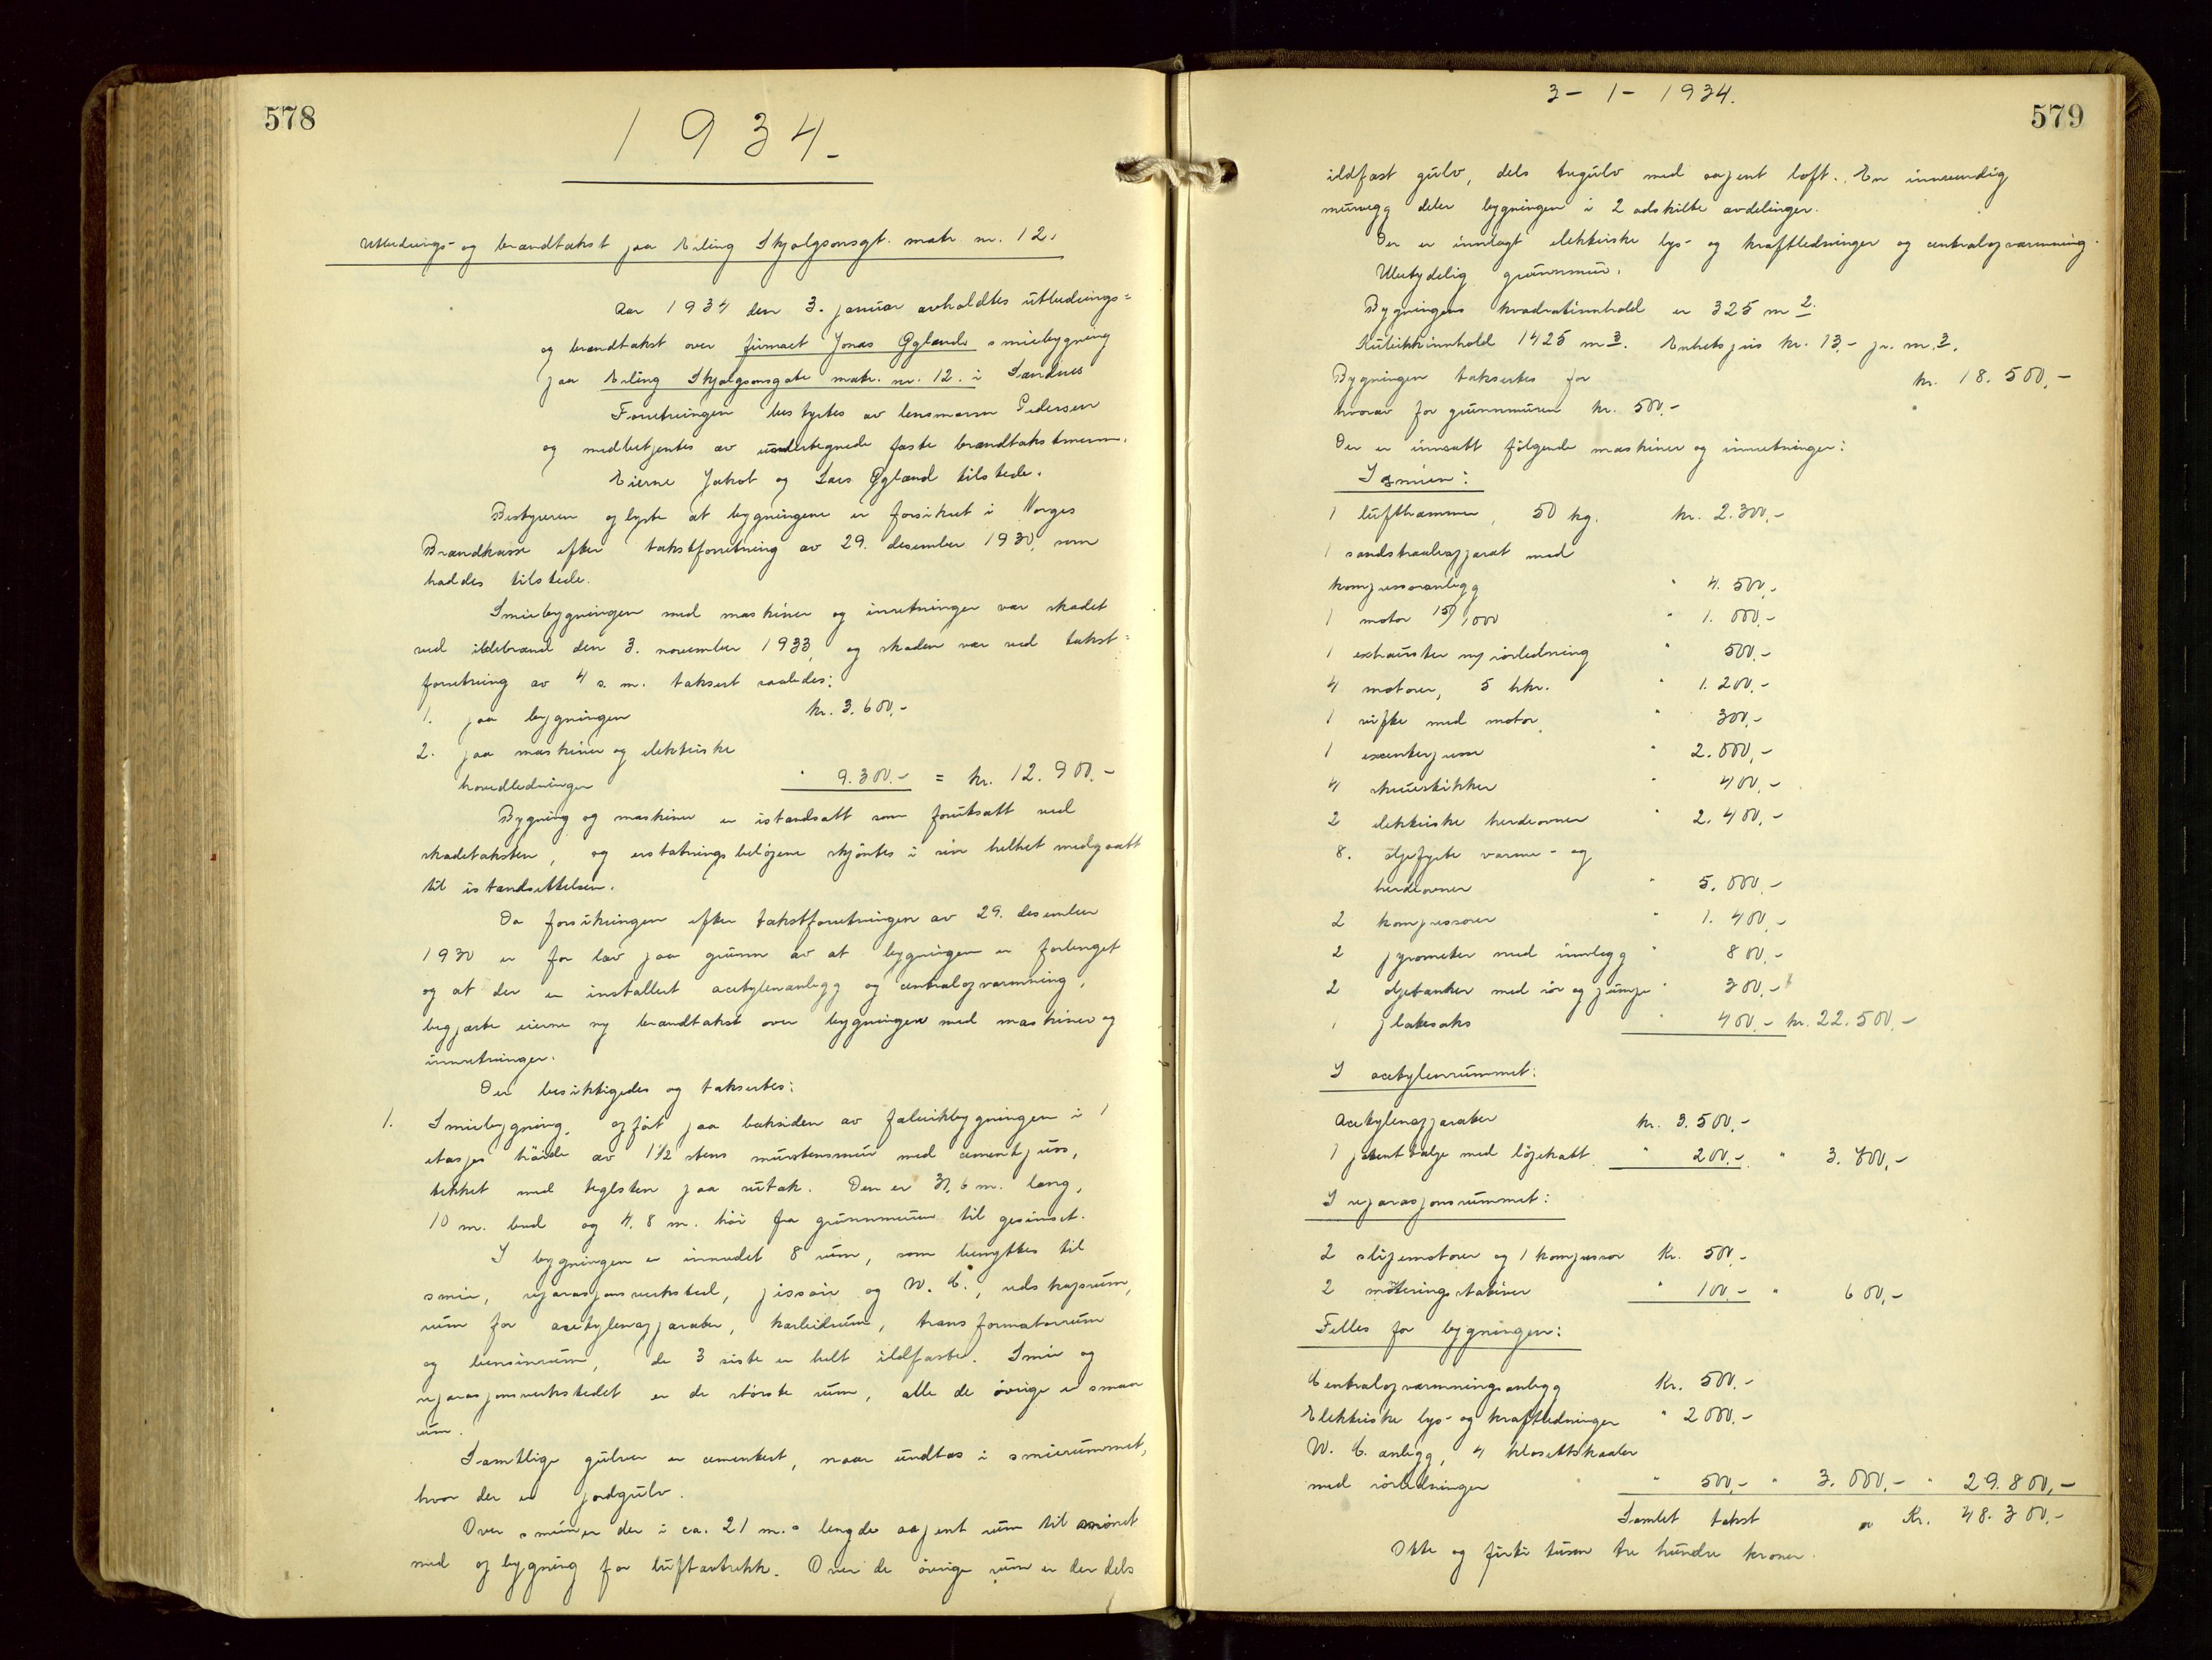 578
1934.-
Utbedrings- og brandtakst paa Erling Skjalgsonsgt. matr. nr. 12.
Aar 1934 den 3. januar avholdtes utbedrings-
og brandtakst over firmaet Jonas Øglænds smiebygning
paa Erling Skjalgsonsgate matr. nr. 12. i Sandnes
Forretningen bestyrtes av lensmann Pedersen
og medbetjentes av undertegnede faste brandtakstmenn.
Eierne Jakob og Lars Øgland tilstede.
Bestyreren oplyste at bygningene er forsikret i Norges
Brandkasse efter takstforretning av 29. desember 1930, som
haddes tilstede.
Smiebygningen med maskiner og inretninger var skadet
ved ildebrand den 3. november 1933, og skaden var ved takst-
forretning av 4 s. m. taksert saaledes:
1. paa bygningen kr. 3.600,-
2. paa maskiner og elektriske
hovedledninger " 9.300.- = kr. 12.900.-
Bygning og maskiner er istandsatt som forutsatt ved
skadetaksten, og erstatningsbeløpene skjøntes i sin helhet medgaatt
til istandsettelsen.
Da forsikringen efter takstforretningen av 29. desember
1930 er for lav paa grunn av at bygningen er forlenget
og at der er installert acetylenanlegg og centralopvarmning,
begjærte eierne ny brandtakst over bygningen med maskiner og
innretninger.
Der besiktigedes og taksertes:
1. Smiebygning, opført paa baksiden av fabrikbygningen i 1
etasjes høide av 1 1/2 stens murstensmur med cementpuss,
tekket med teglsten paa rutak. Den er 31,6 m. lang,
10 m. bred og 4.8 m. høi fra grunnmuren til gesimset.
I bygningen er innredet 8 rum, som benyttes til
smie, reparasjonsverksted, pissoir og W. C., redskapsrum,
rum for acetylenapparater, karbidrum, transformatorrum
og bensinrum, de 3 siste er helt ildfaste. Smie og
reparasjonsverkstedet er de største rum, alle de øvrige er smaa
rum.
Samtlige gulver er cementert, naar undtas i smierummet,
hvor der er jordgulv.
Over smien er der i ca. 21 m.s lengde aapent rum til mønet
med opbygning for luftavtrekk. Over de øvrige rum er der dels
3 - 1 - 1934.
579
ildfast gulv, dels tregulv med aapent loft. En innvendig
murvegg deler bygningen i 2 adskilte avdelinger.
Der er innlagt elektriske lys- og kraftledninger og centralopvarmning.
Ubetydelig grunnmur.
Bygningens kvadratinnhold er 325 m2.
Kubikkinnhold 1425 m3. Enhetspris kr. 13,- pr. m.3.
Bygningen taksertes for kr. 18.500,-
hvorav for grunnmuren kr. 500.-
Der er innsatt følgende maskiner og innretninger:
I smien:
1 lufthammer, 50 kg. kr. 2.300,-
1 sandstraaleapparat med
kompressoranlegg " 4.500,-
1 motor 15/1000 " 1.000,-
1 exhauster m/ rørledning " 500.-
4 motorer, 5 hkr. " 1.200,-
1 vifte med motor " 300,-
1 excenterpresse " 2.000,-
4 skruestikker " 400,-
2 elektriske herdeovner " 2.400,-
8. oljefyrte varme- og
herdeovner " 5.000,-
2 kompressorer " 1.400,-
2 pyrometer med innlegg " 800,-
2 oljetanker med rør og pumpe " 300,-
1 platesaks " 400,- kr. 22.500,-
I acetylenrummet:
Acetylenapparater kr. 3.500,-
1 patenttalje med løpekatt " 200.- " 3.700,-
I reparasjonsrummet:
2 slipemotorer og 1 kompressor Kr. 500,-
2 monteringsstativer " 100.- " 600,-
Felles for bygningen:
Centralopvarmningsanlegg Kr. 500.-
Elektriske lys- og kraftledninger " 2000.-
W. C. anlegg, 4 klosettskaaler
med rørledninger " 500,- " 3.000,- " 29.800,-
Samlet takst Kr. 48.300,-
Otte og firti tusen tre hundre kroner.